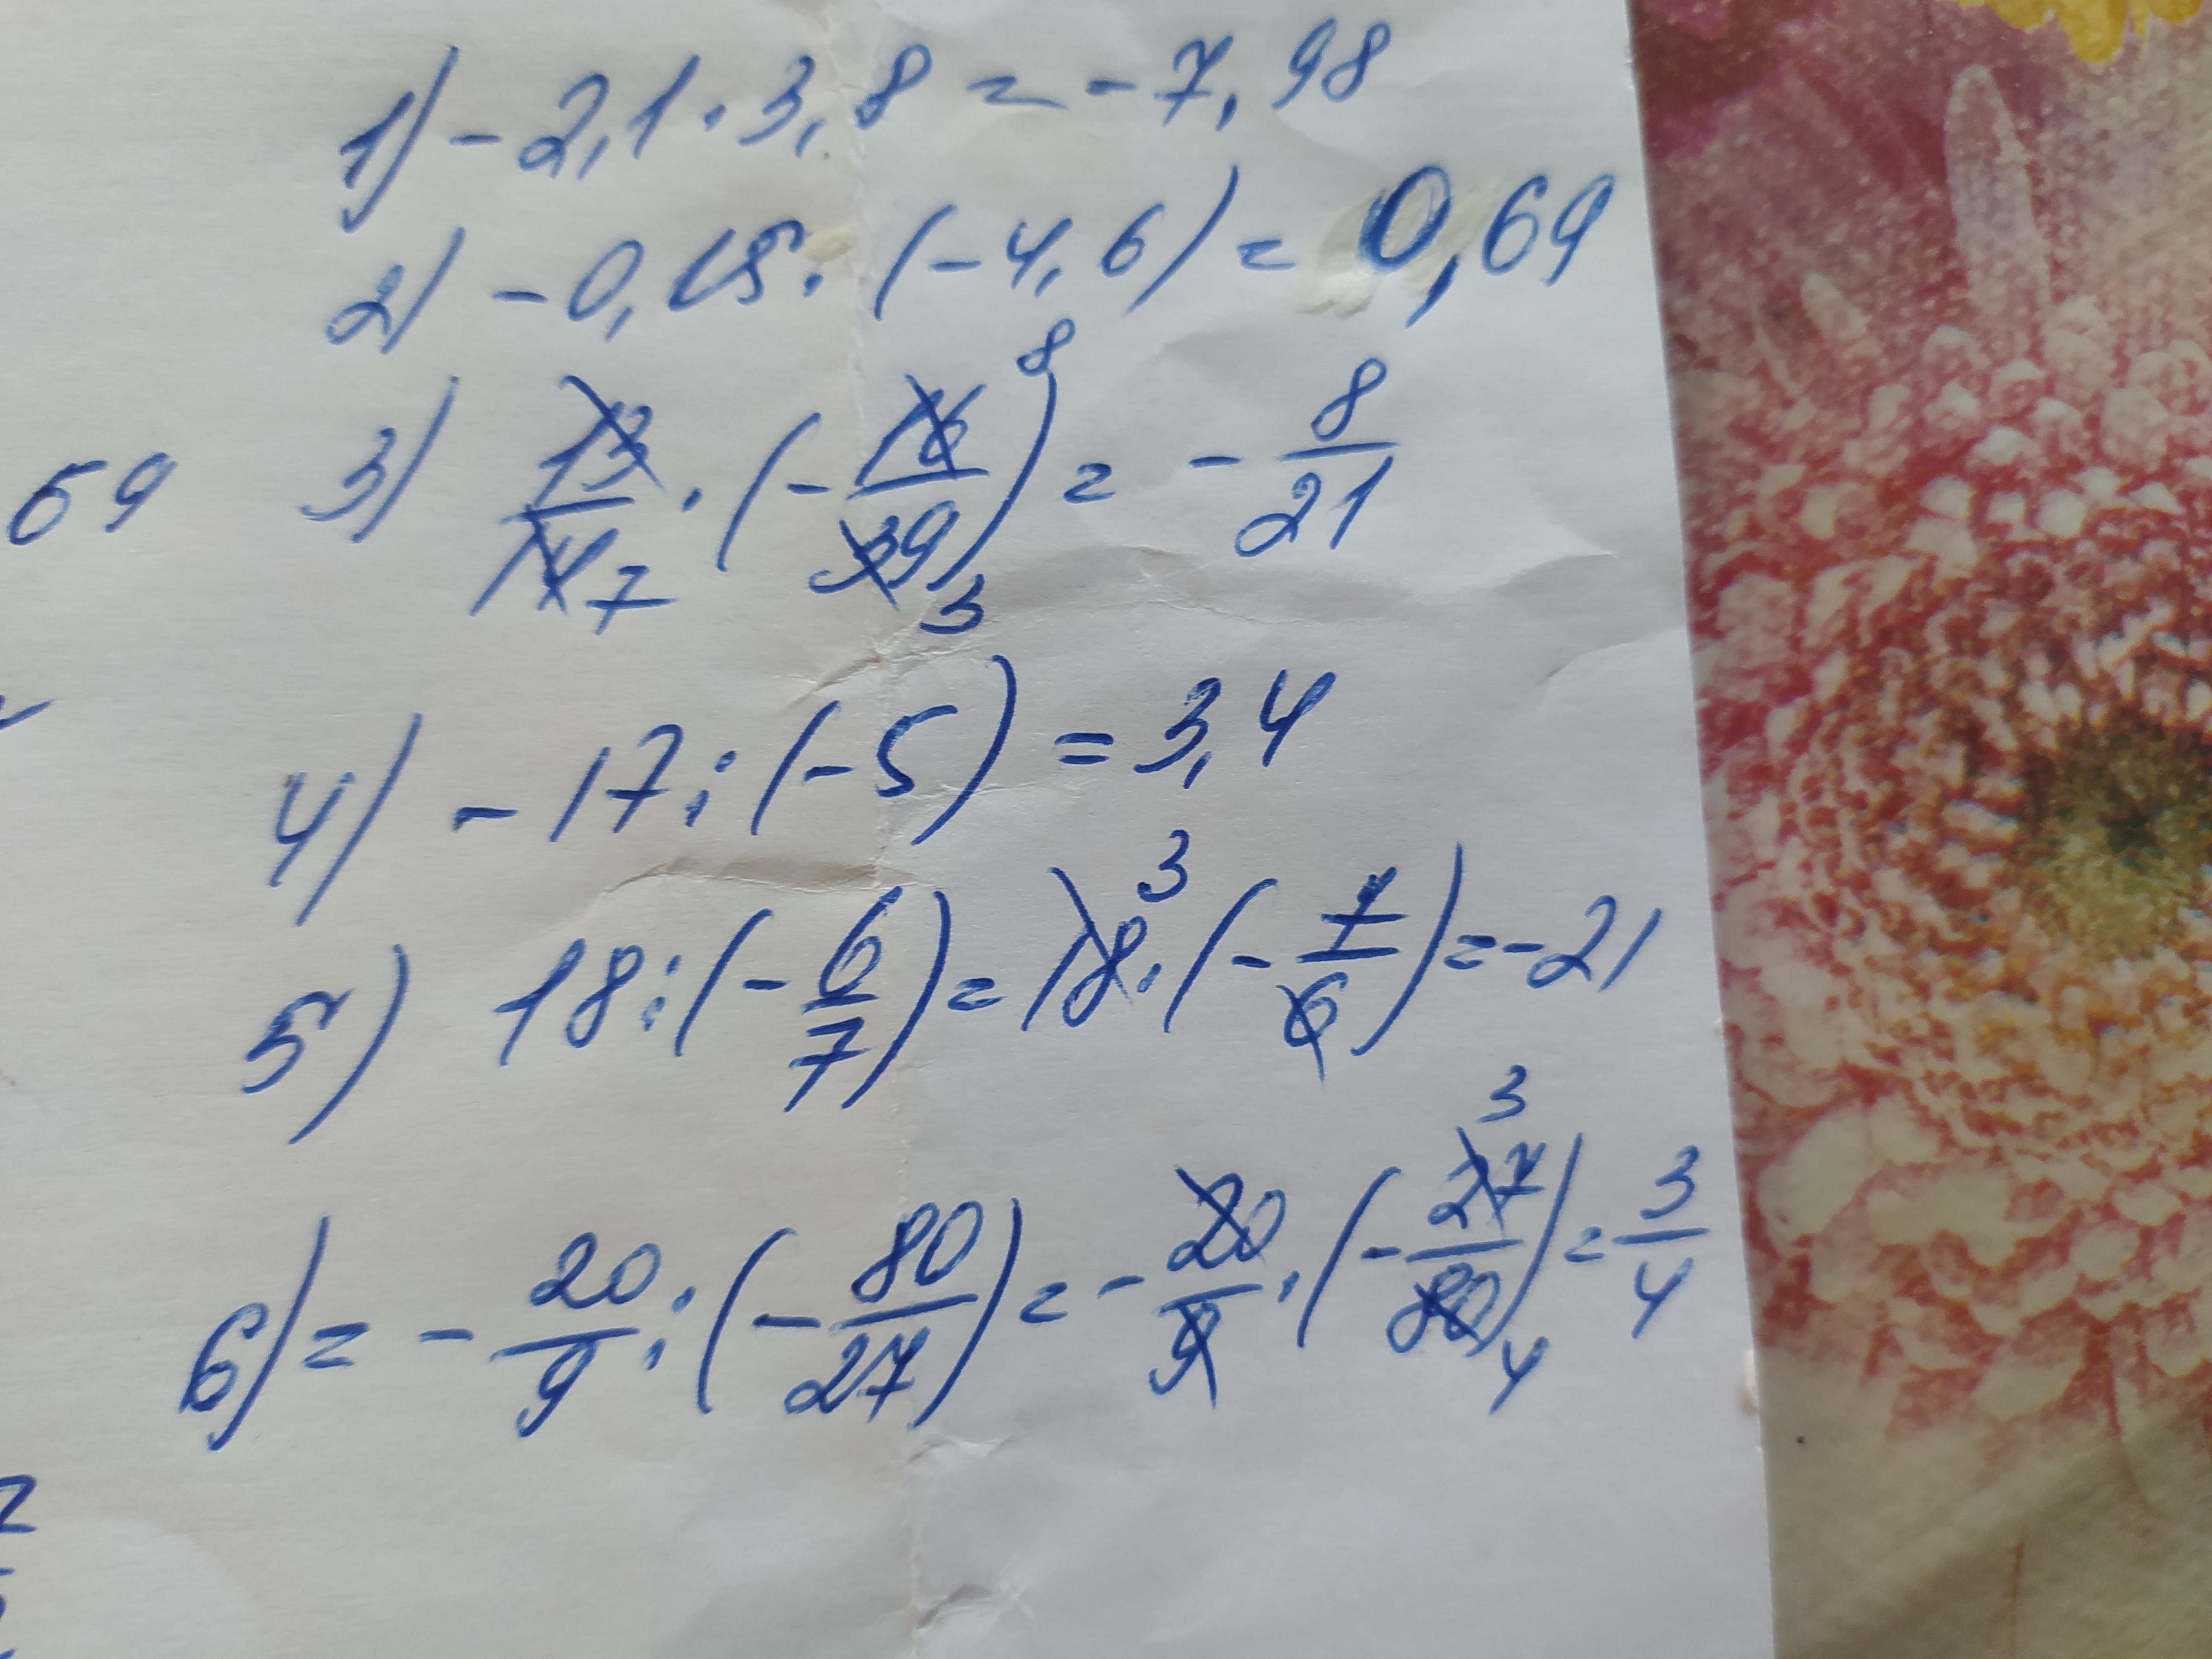 1) -2,1 · 3,8 = -7,98
2) -0,15 · (-4,6) = 0,69
69 3) 13/14 7 · (-16/39)8 3 = -8/21
4) -17 : (-5) = 3,4
5) 18 : (-6/7) = 18 3 · (-7/6) = -21
6) = -20/9 : (-80/27) = -20/9 · (-27 3/80 4) = 3/4